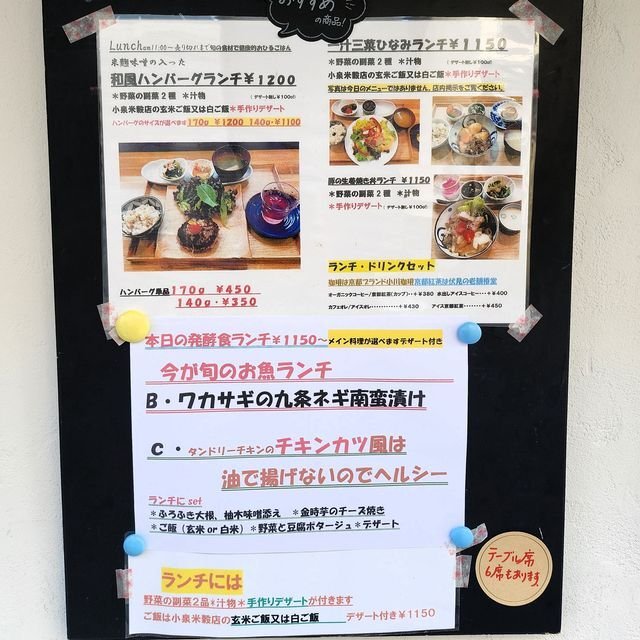 おすすめ
の商品!
Lunch am11:00～売り切れまで 旬の食材で健康的おひるごはん
米麹味噌の入った
和風ハンバーグランチ¥1200
＊野菜の副菜2種 ＊汁物 (デザート無し¥100off)
小泉米穀店の玄米ご飯又は白ご飯＊手作りデザート
ハンバーグのサイズが選べます170g ¥1200 140g・¥1100
ハンバーグ単品170g ¥450
140g・¥350
一汁三菜ひなみランチ¥1150
＊野菜の副菜2種 ＊汁物 (デザート無し¥100off)
小泉米穀店の玄米ご飯又は白ご飯＊手作りデザート
写真は今日のメニューではありません。店内掲示をご覧ください。
豚の生姜焼き丼ランチ ¥1150
＊野菜の副菜2種 ＊汁物
＊手作りデザート (デザート無し¥100off)
ランチ・ドリンクセット
珈琲は京都ブランド小川珈琲京都紅茶は伏見の老舗椿堂
オーガニックコーヒー/京都紅茶(カップ)・・+¥380 水出しアイスコーヒー・・・+¥400
カフェオレ/アイスオレ・・・・・・・・・・・・+¥430 アイス京都紅茶・・・・・・・・¥450
本日の発酵食ランチ¥1150～メイン料理が選べますデザート付き
今が旬のお魚ランチ
B・ワカサギの九条ネギ南蛮漬け
C・タンドリーチキンのチキンカツ風は
油で揚げないのでヘルシー
ランチにset
＊ふろふき大根、柚木味噌添え ＊金時芋のチーズ焼き
＊ご飯(玄米or白米)＊野菜と豆腐ポタージュ＊デザート
ランチには
野菜の副菜2品＊汁物＊手作りデザートが付きます
ご飯は小泉米穀店の玄米ご飯又は白ご飯 デザート付き¥1150
テーブル席
6席もあります。